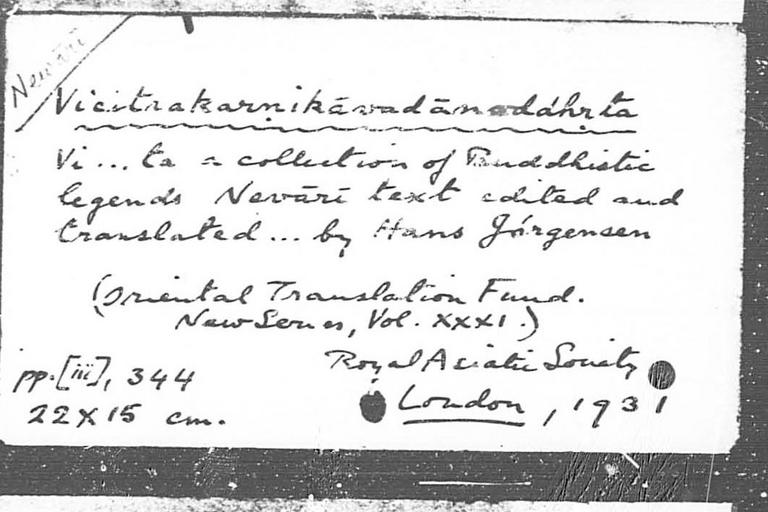 Newārī
Vicitrakarnikāvadānodáhrta
Vi... ta a collection of Buddhistic
legends Nevārī text edited and
translated... by Hans Jórgensen
(Oriental Translation Fund.
New Series, Vol. XXXI.)
Royal Asiatic Society
pp. [iii], 344
London, 1931
22 x 15 cm.